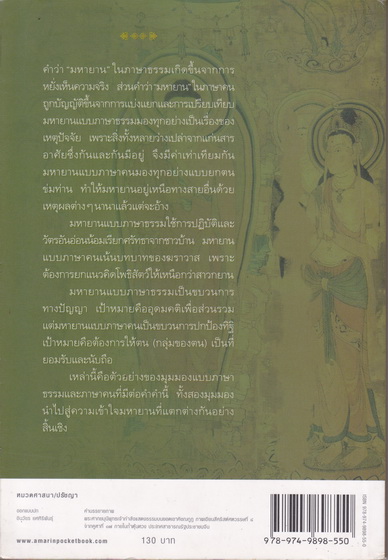 คำว่า "มหายาน" ในภาษาธรรมเกิดขึ้นจากการ
หยั่งเห็นความจริง ส่วนคำว่า "มหายาน" ในภาษาคน
ถูกบัญญัติขึ้นจากการแบ่งแยกและการเปรียบเทียบ
มหายานแบบภาษาธรรมมองทุกอย่างเป็นเรื่องของ
เหตุปัจจัย เพราะสิ่งทั้งหลายว่างเปล่าจากแก่นสาร
อาศัยซึ่งกันและกันมีอยู่ จึงมีค่าเท่าเทียมกัน
มหายานแบบภาษาคนมองทุกอย่างแบบยกตน
ข่มท่าน ทำให้มหายานอยู่เหนือทางสายอื่นด้วย
เหตุผลต่างๆ นานาแล้วแต่จะอ้าง
มหายานแบบภาษาธรรมใช้การปฏิบัติและ
วัตรอันอ่อนน้อมเรียกศรัทธาจากชาวบ้าน มหายาน
แบบภาษาคนเน้นบทบาทของฆราวาส เพราะ
ต้องการยกแนวคิดโพธิสัตว์ให้เหนือกว่าสาวกยาน
มหายานแบบภาษาธรรมเป็นขบวนการ
ทางปัญญา เป้าหมายคืออุดมคติเพื่อส่วนรวม
แต่มหายานแบบภาษาคนเป็นขบวนการปกป้องทิฐิ
เป้าหมายคือต้องการให้ตน (กลุ่มของตน) เป็นที่
ยอมรับและนับถือ
เหล่านี้คือตัวอย่างของมุมมองแบบภาษา
ธรรมและภาษาคนที่มีต่อคำคำนี้ ทั้งสองมุมมอง
นำไปสู่ความเข้าใจมหายานที่แตกต่างกันอย่าง
สิ้นเชิง
หมวดศาสนา/ปรัชญา
ออกแบบปก
www.amarinpocketbook.com
130 บาท
ISBN 978-974-9898-55-0
978-974-9898-550